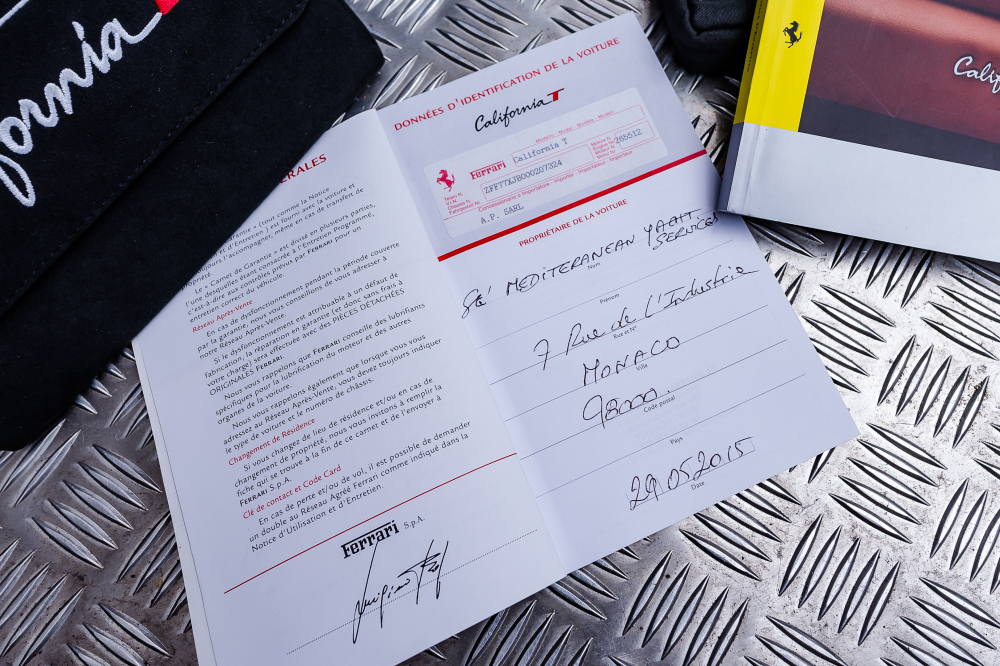 ornia
ÉRALES
arantie » (tout comme la Notice
d'Entretien ) est fourni avec la voiture et
toujours l'accompagner, même en cas de transfert de
propriété.
Le « Carnet de Garantie » est divisé en plusieurs parties,
l'une desquelles étant consacrée à l'Entretien Programmé,
c'est-à-dire aux contrôles prévus par FERRARI pour un
entretien correct du véhicule.
Réseau Après-Vente
En cas de dysfonctionnement pendant la période couverte
par la garantie, nous vous conseillons de vous adresser à
notre Réseau Après-Vente.
Si le dysfonctionnement est attribuable à un défaut de
fabrication, la réparation en garantie (et donc sans frais à
votre charge) sera effectuée avec des PIÈCES DÉTACHÉES
ORIGINALES FERRARI.
Nous vous rappelons que FERRARI conseille des lubrifiants
spécifiques pour la lubrification du moteur et des autres
organes de la voiture.
Nous vous rappelons également que lorsque vous vous
adressez au Réseau Après-Vente, vous devez toujours indiquer
le type de voiture et le numéro de châssis.
Changement de Résidence
Si vous changez de lieu de résidence et/ou en cas de
changement de propriété, nous vous invitons à remplir la
fiche qui se trouve à la fin de ce carnet et de l'envoyer à
FERRARI S.p.A.
Clé de contact et Code Card
En cas de perte et/ou de vol, il est possible de demander
un double au Réseau Agréé Ferrari comme indiqué dans la
Notice d'Utilisation et d'Entretien.
Ferrari S.p.A.
DONNÉES D'IDENTIFICATION DE LA VOITURE
California T
Modello - Model - Modèle - Modell
Ferrari California T
265512
Telaio N.
V.I.N.
Châssis N.
Fahrgestell Nr
ZFF77XJB000207324
Concessionario o Importatore - Importer - Importateur - Importeur
A.P. SARL
PROPRIÉTAIRE DE LA VOITURE
Sté MEDITERANEAN YAHT SERVICES
Nom
Prénom
7 Rue de l'Industrie
Rue et N°
MONACO
Ville
98000.
Code postal
Pays
29.05.2015
Date
Calif